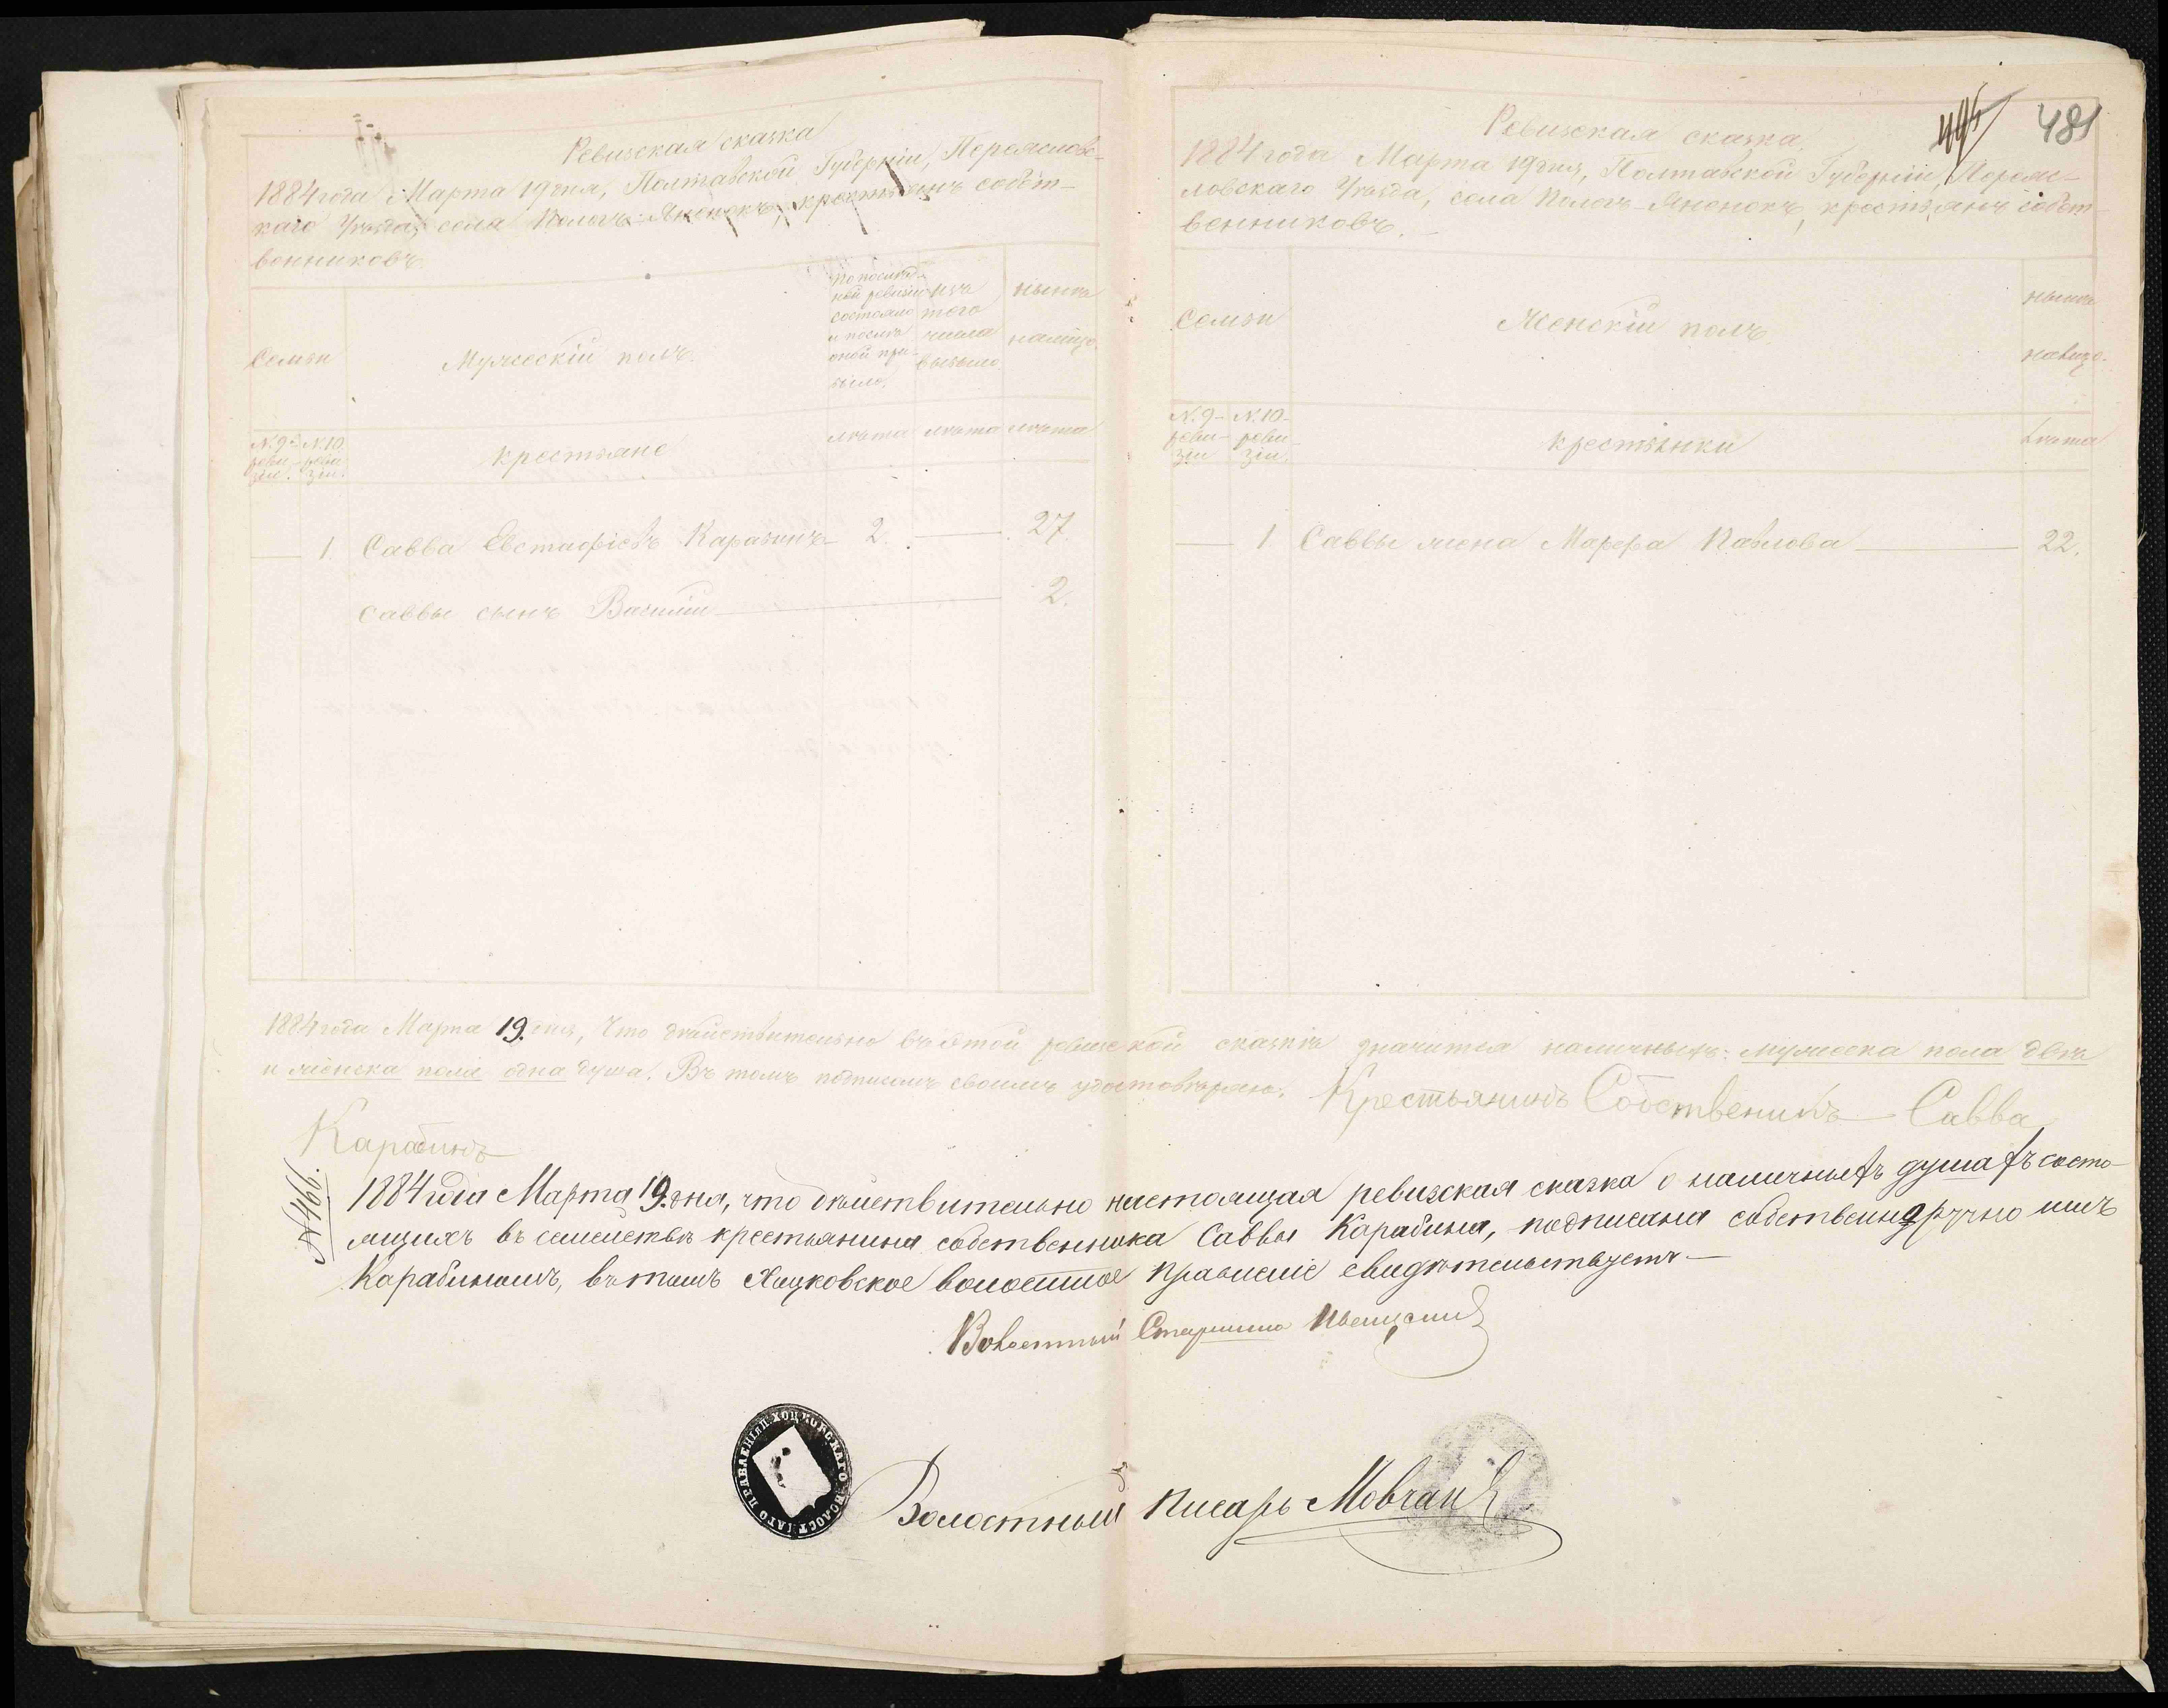 Ревизская сказка
1884 года Марта 19 дня, Полтавской Губерніи, Переяслов-
скаго Уѣзда, села Пологъ-Яненокъ, крестьянъ собст-
венниковъ.
Семьи
Мужескій полъ.
По послѣд-
ней ревизіи
состояло
и послѣ
оной при-
было.
изъ
того
числа
выбыло
нынѣ
налицо.
№ 9й реви-зіи. № 10 реви-зіи.
крестьяне
лѣта лѣта лѣта
1. Савва Евстафіевъ Карабинъ 2. 27.
Саввы сынъ Василій 2.
495 481
Ревизская сказка.
1884 года Марта 19 дня, Полтавской Губерніи, Переяс-
ловскаго Уѣзда, села Пологъ-Яненокъ, крестьянъ собст-
венниковъ.
Семьи
Женскій полъ.
нынѣ
налицо.
№ 9- реви-зіи № 10- реви-зіи.
крестьянки
Лѣта
1. Саввы жена Марфа Павлова 22.
1884 года Марта 19. дня, Что дѣйствительно въ этой ревизской сказкѣ значится наличныхъ: мужеска пола двѣ
и женска пола одна душа. Въ томъ подписомъ своимъ удостовѣряю. Крестьянинъ Собственикъ Савва
Карабинъ
№ 466.
1884 года Марта 19. дня, что дѣйствительно настоящая ревизская сказка о наличныхъ душахъ состо-
ящихъ въ семействѣ крестьянина собственника Саввы Карабина, подписана собственноручно имъ
Карабиномъ, въ томъ Хоцковское волостное правленіе свидѣтельствуетъ
Волостный Старшина
ХОЦКОВСКАГО ВОЛОСТНАГО ПРАВЛЕНІЯ П.
Волостный писарь Мовчанъ